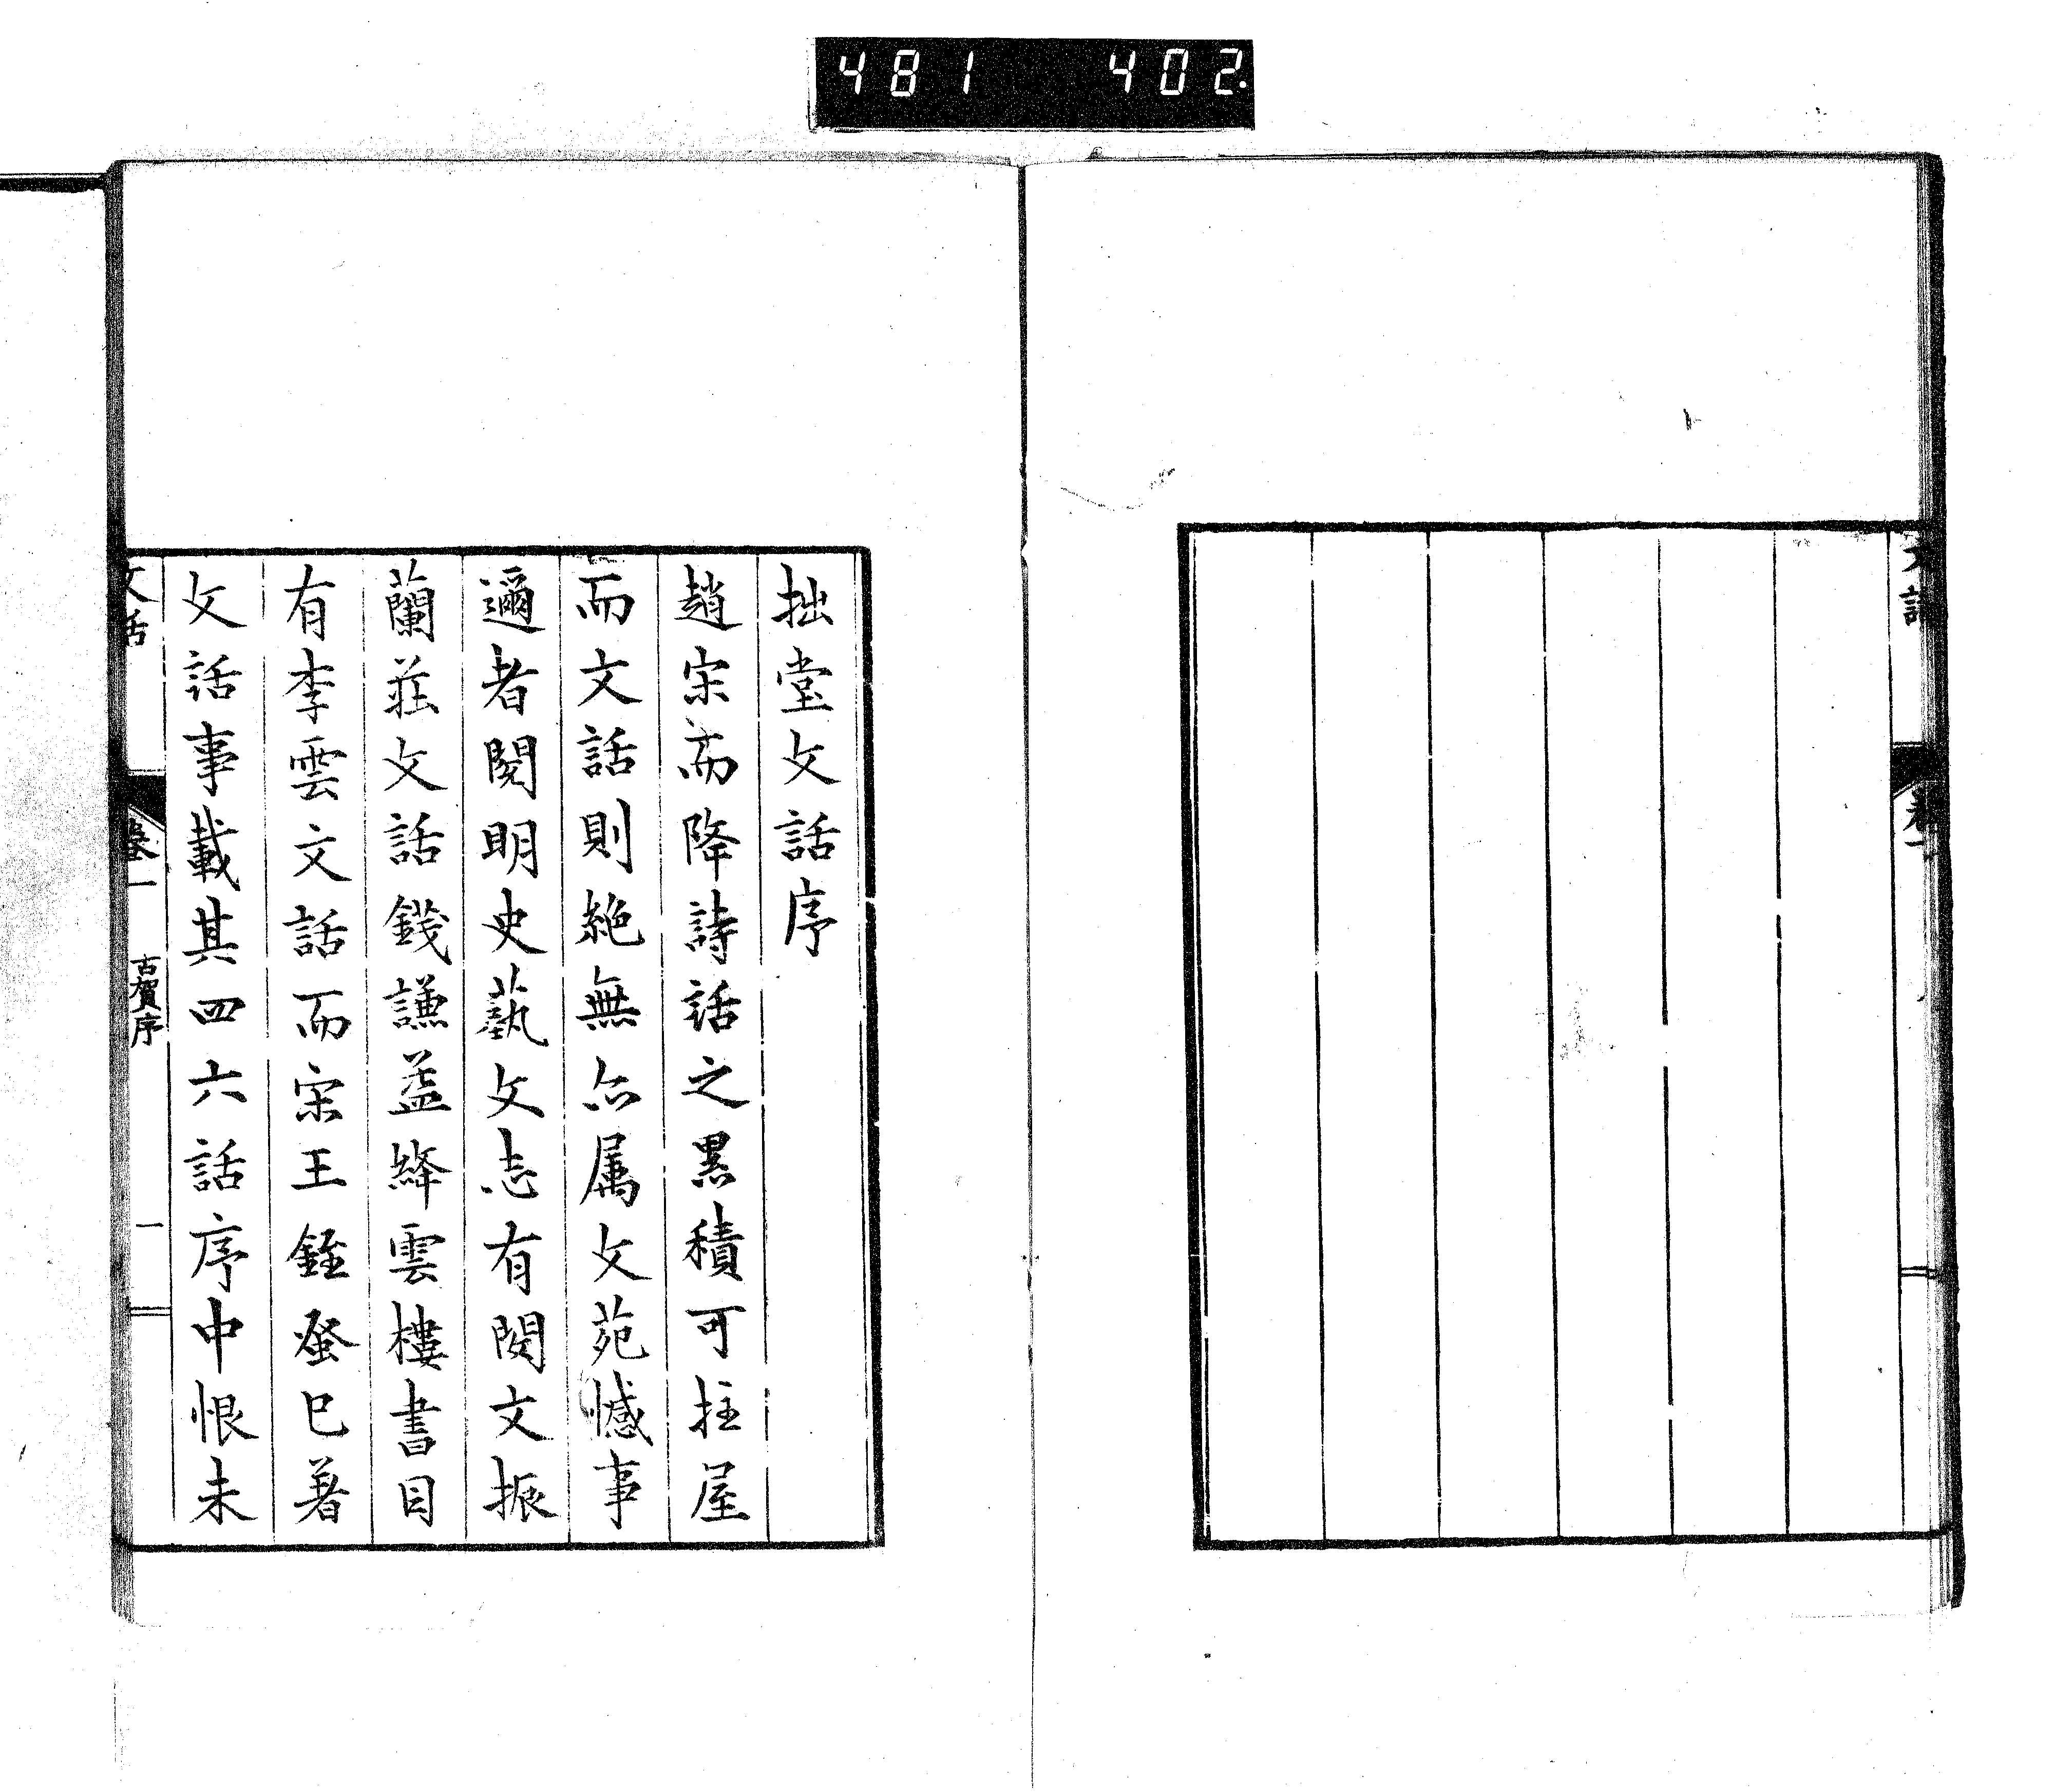 481 402.
文話
卷一
拙堂文話序
趙宋而降詩話之累積可拄屋
而文話則絶無亦属文苑憾事
邇者閲明史藝文志有閔文振
蘭莊文話錢謙益絳雲樓書目
有李雲文話而宋王銍蚤已著
文話事載其四六話序中恨未
文話
卷一
古賀序
一